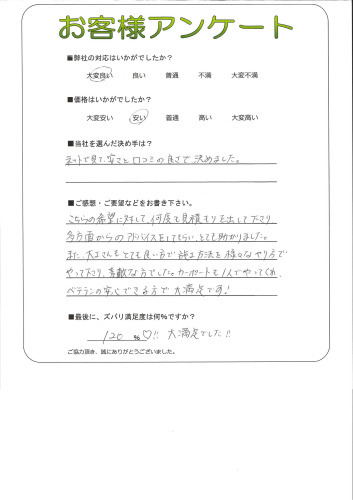 お客様アンケート
■弊社の対応はいかがでしたか？
大変良い 良い 普通 不満 大変不満
■価格はいかがでしたか？
大変安い 安い 普通 高い 大変高い
■当社を選んだ決め手は？
ネットで見て、安さと口コミの良さで決めました。
■ご感想・ご要望などをお書き下さい。
こちらの希望に対して、何度も見積もりを出して下さり
多方面からのアドバイスをしてもらい、とても助かりました。
また、大工さんもとても良い方で施工方法を様々なやり方で
やって下さり、素敵な方でした。カーポートも1人でやってくれ、
ベテランの安心できる方で大満足です!
■最後に、ズバリ満足度は何%ですか？
120 %♡!! 大満足でした!!
ご協力頂き、誠にありがとうございました。